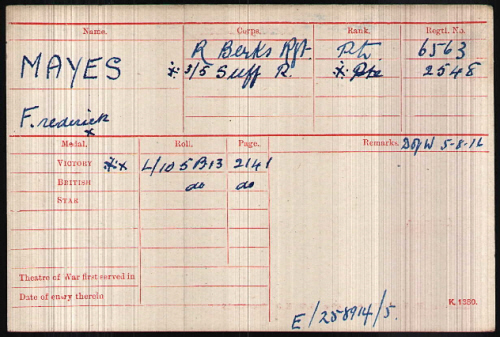 Name. Corps. Rank. Regtl. No.
MAYES R Berks Rgt. Pte 6563
※ 3/5 Suff R. ※ Pte 2548
Frederick
x
Medal. Roll. Page. Remarks. DofW 5-8-16
VICTORY ※x L/10 5B13 2141
BRITISH do do
STAR
Theatre of War first served in
Date of entry therein
K. 1380.
E/258914/5.